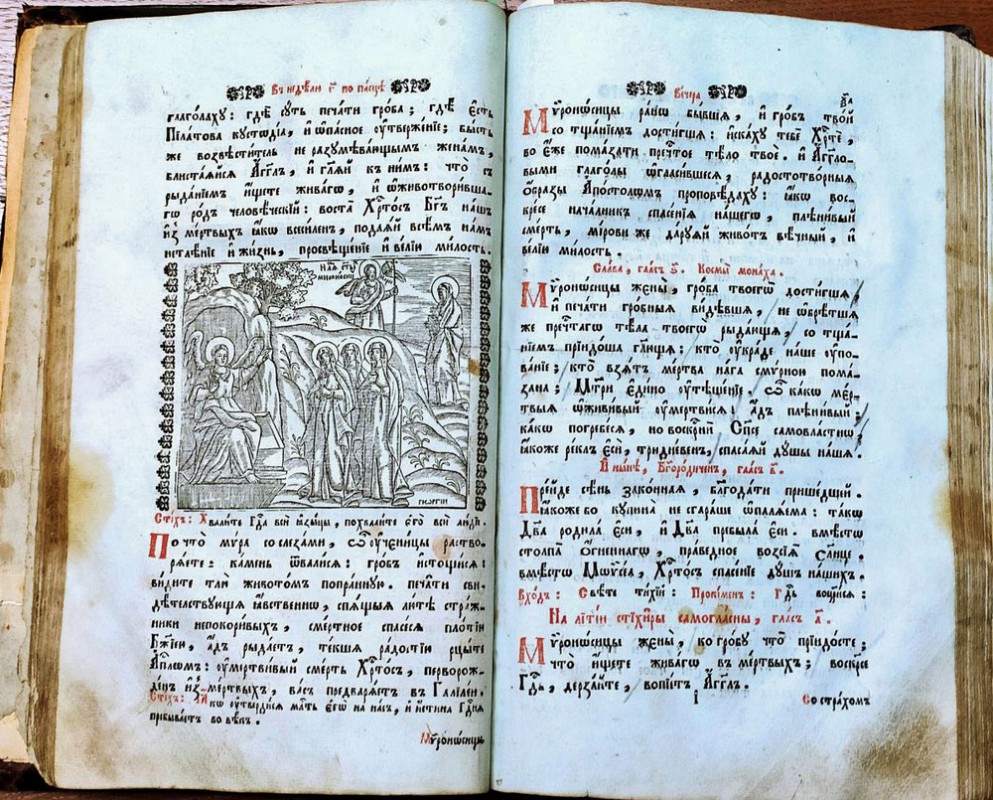 Въ недѣлю г҃ по пасцѣ
глаголаху: гдѣ суть печати гроба; гдѣ есть
Пілатова кустодіа, и ѡпасное оутвержение; бысть
же возвѣститель не разумѣвающымъ женамъ,
блистаяйся Агг҃лъ, и гл҃яй к нимъ: что с
рыданіемъ ищете живаго, и ѡживотворивша-
гѡ родъ человѣческій: воста Хрⷭ҇тосъ Бг҃ъ нашъ
из̾ мертвыхъ ꙗкѡ всесиленъ, подаяй всѣмъ намъ
нетлѣніе и жизнь, просвѣщеніе и велію милость.
ГЕѠРГІИ
Стіхъ: Хвалите Гдⷭ҇а вси ꙗзыцы, похвалите его вси людіе.
По что мѵра со слезами, ѽ оученицы раство-
ряете: камень ѿвалися: гробъ истощися:
видите тлю животомъ попранную. печати сви-
дѣтелствующя ꙗвственнѡ, спящыя лютѣ стра-
жники непокоривыхъ, смертное спасеся плотію
Бж҃іею, адъ рыдаетъ, текшя радостію рцыте
Апⷭ҇лѡмъ: оумертвивый смерть Хрⷭ҇тосъ, перворож-
денъ из̾ мертвыхъ, васъ предваряетъ в Галілеи.
Стіхъ: Ꙗкѡ оутвердися млⷭ҇ть егѡ на насъ, и истина Гдⷭ҇ня
пребываетъ во вѣкъ.
Мѵронѡсицы
Вечера
Мѵронѡсицы ранѡ бывшя, и гробъ твой
со тщаніемъ достигшя: искаху тебе Хрⷭ҇те,
во еже помазати пречⷭ҇тое тѣло твое. и Агг҃ло-
выми глаголы ѡгласившеся, радостотворныя
ѡбразы Апостолѡмъ проповѣдаху: ꙗкѡ вос-
кресе началникъ спасенія нашегѡ, плѣнивый
смерть, мірови же даруяй животъ вѣчный, и
велію милость.
Слава, гласъ. Космы монаха.
Мѵронѡсицы жены, гроба твоегѡ достигшя,
и печати грѡбныя видѣвшя, не ѡбрѣтшя
же пречⷭ҇тагѡ тѣла твоегѡ рыдающя, со тща-
ніемъ пріидоша гл҃ющя: кто оукраде наше оупо-
ваніе; кто взятъ мертва нага смѵрною пома-
зана; Мт҃ри едино оутѣшеніе. ѽ какѡ мер-
твыя ѡживый оумертвися; адъ плѣнивый;
какѡ погребеся, но воскресни Сп҃се самовластнѡ,
ꙗкоже реклъ еси, тридневенъ, спасаяй душы нашя.
И нынѣ, Бг҃ородиченъ, гласъ в҃.
Прейде сѣнь законная, благодати пришедшей.
Ꙗкоже бо купина не сгараше ѡпаляема: такѡ
Дв҃а родила еси, и Дв҃а пребыла еси. вмѣстѡ
столпа огненнагѡ, праведное возсія слн҃це.
вмѣстѡ Мѡѵсеа, Хрⷭ҇тосъ спасеніе душъ нашихъ.
Входъ: Свѣте тихій: Прокіменъ: Гдⷭ҇ь воцрⷭ҇ися:
На літіи стіхиры самогласны, гласъ а҃.
Мѵронѡсицы жены, ко гробу что пріидосте;
что ищете живагѡ в мертвыхъ; воскресе
Гдⷭ҇ь, дерзайте, вопіетъ Агг҃лъ.
Со страхомъ